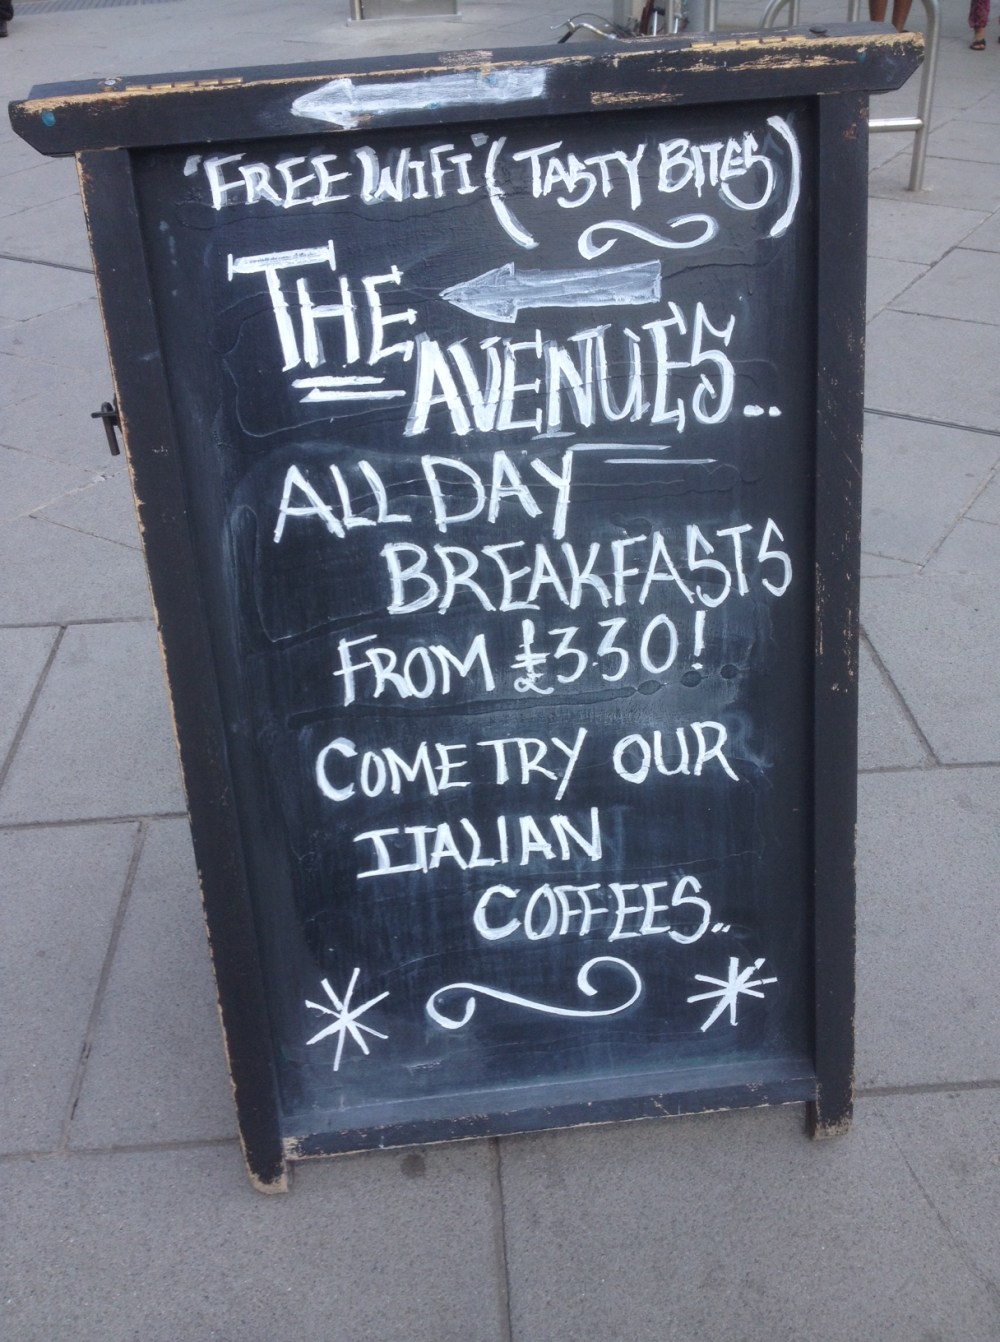 "FREE WIFI" (TASTY BITES)
THE
AVENUES..
ALL DAY
BREAKFASTS
FROM £3.30!
COME TRY OUR
ITALIAN
COFFEES..